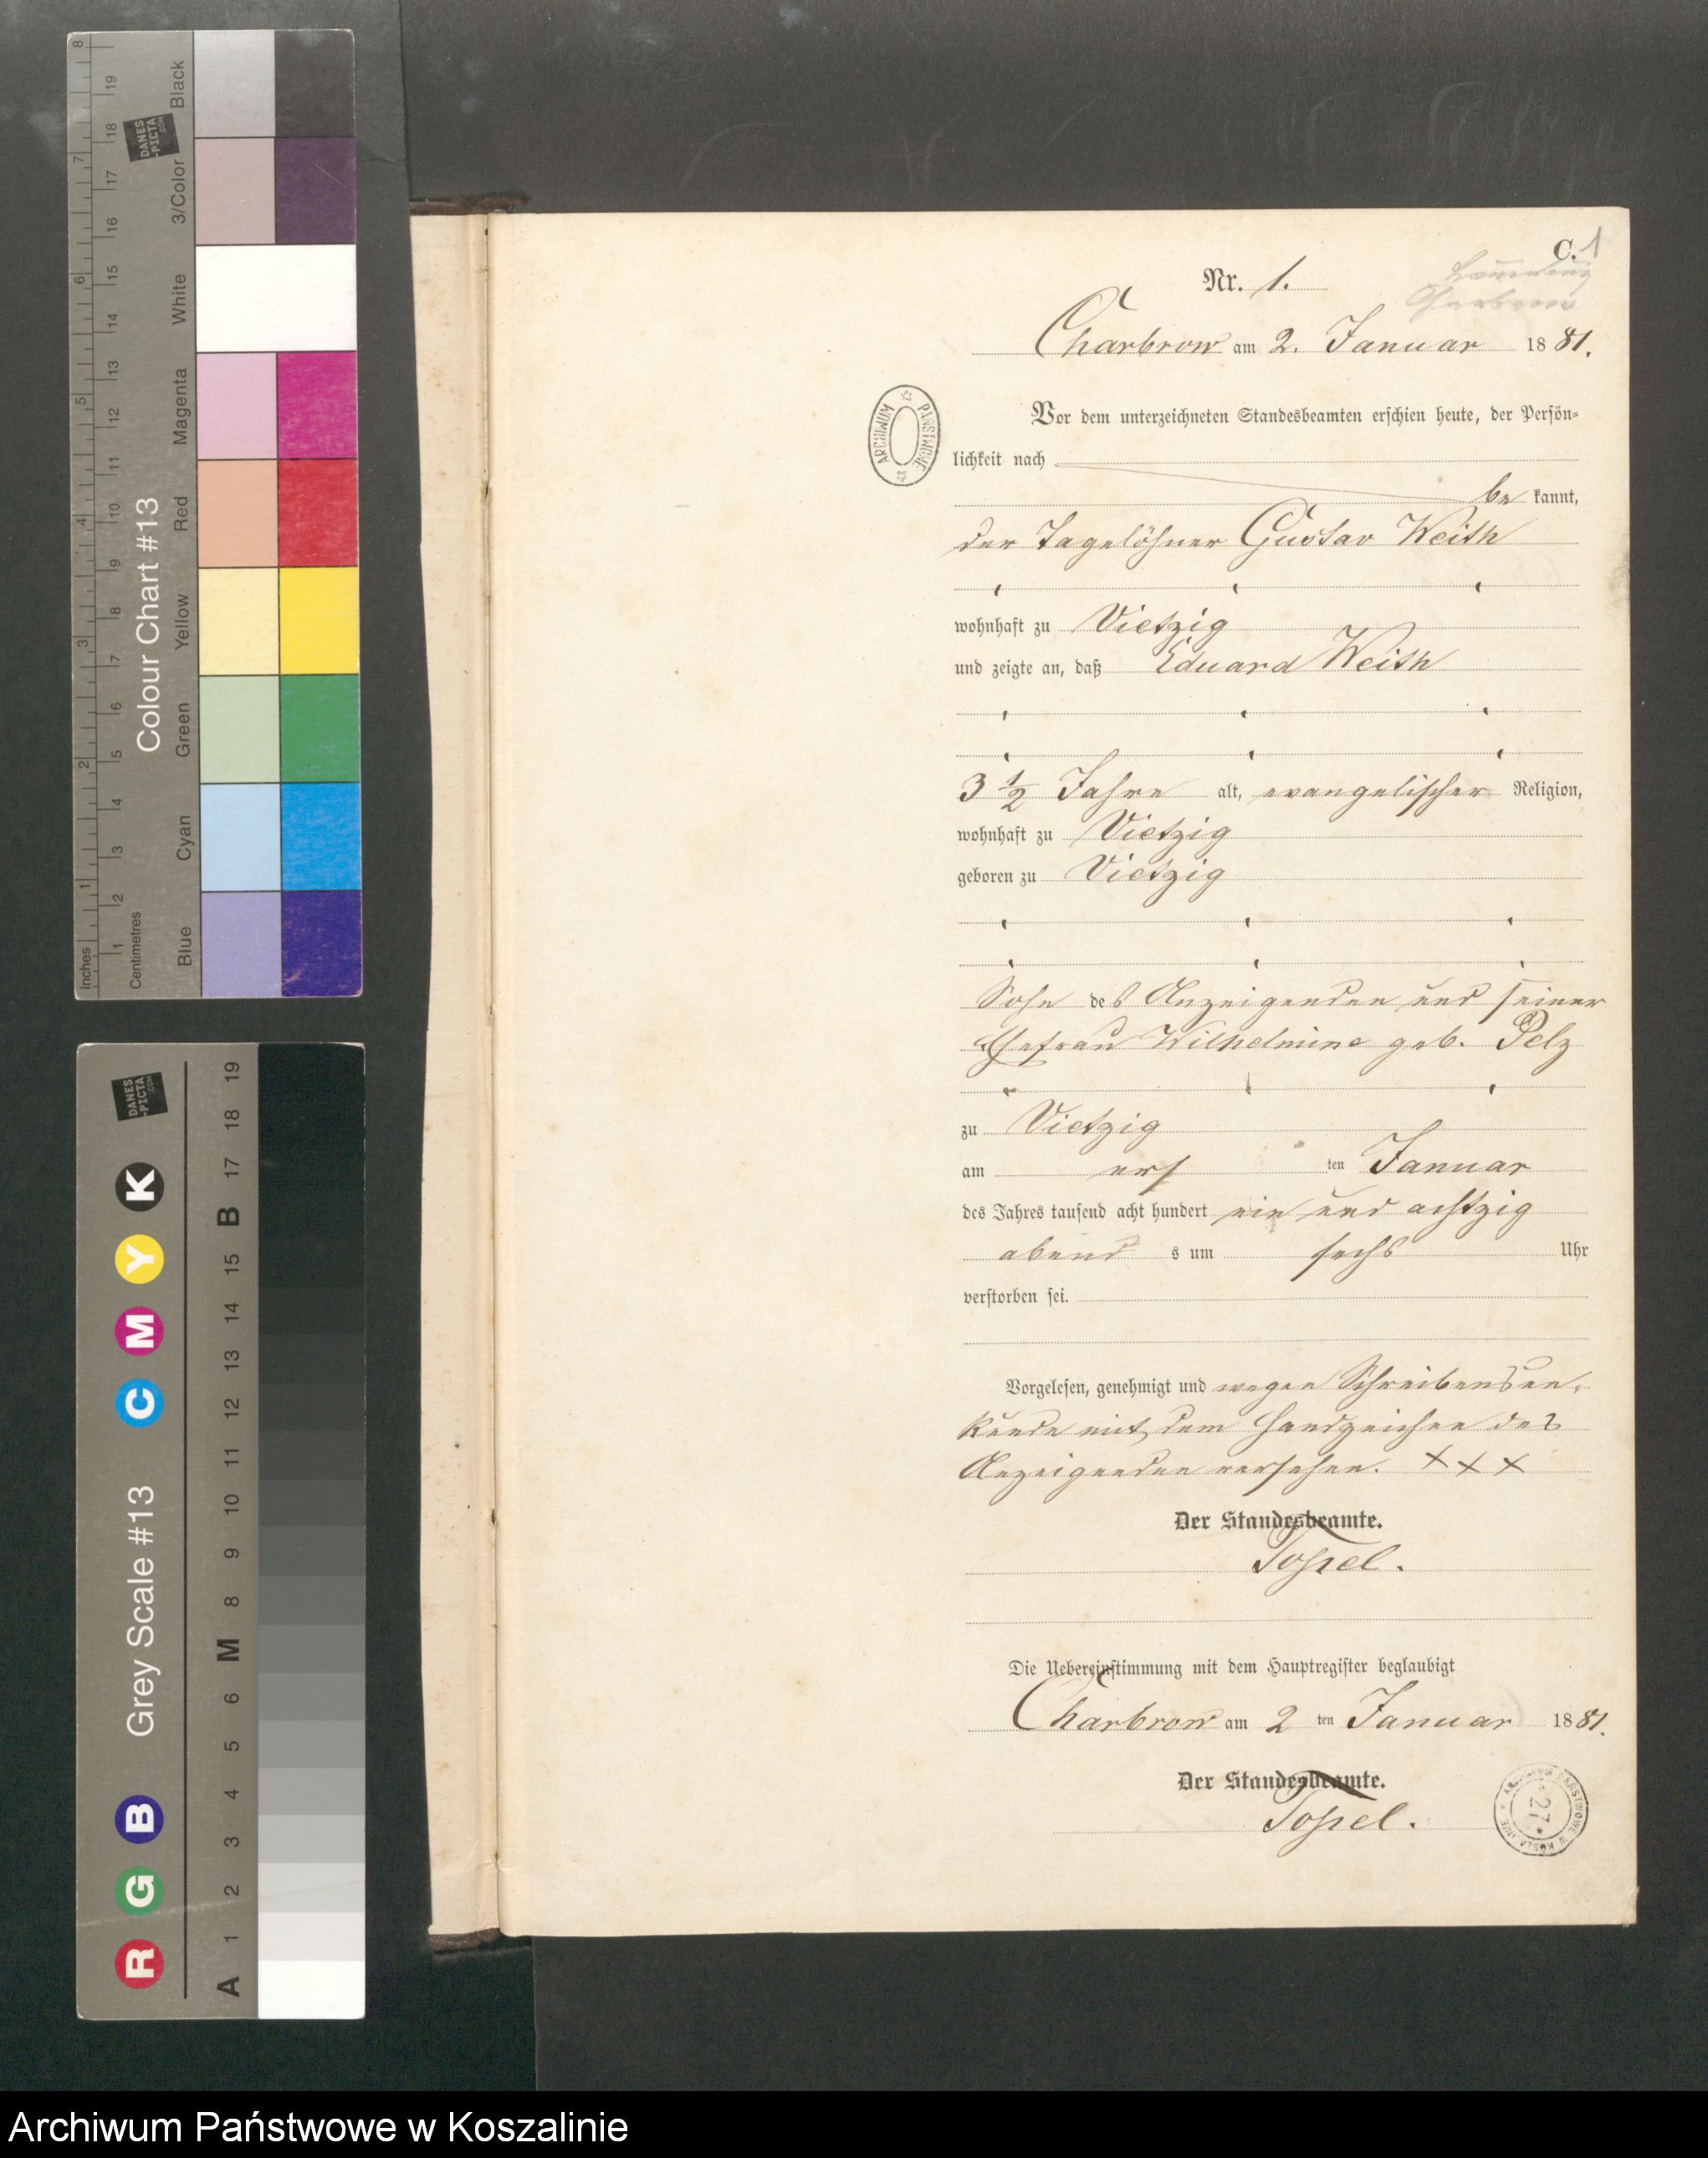 C. 1
Nr. 1.
Lauenburg
Charbrow
Charbrow am 2. Januar 1881.
Vor dem unterzeichneten Standesbeamten erschien heute, der Persön-
lichkeit nach
be kannt,
der Tagelöhner Gustav Weith
wohnhaft zu Vietzig
und zeigte an, daß Eduard Weith
3 1/2 Jahre alt, evangelischer Religion,
wohnhaft zu Vietzig
geboren zu Vietzig
Sohn des Anzeigenden und seiner
Ehefrau Wilhelmine geb. Pelz
zu Vietzig
am ers ten Januar
des Jahres tausend acht hundert ein und achtzig
abend s um sechs Uhr
verstorben sei.
Vorgelesen, genehmigt und wegen Schreibensun-
kunde mit dem Handzeichen des
Anzeigenden versehen. XXX
Der Standesbeamte.
Topel.
Die Uebereinstimmung mit dem Hauptregister beglaubigt
Charbrow am 2 ten Januar 1881.
Der Standesbeamte.
Topel.
ARCHIWUM PAŃSTWOWE
ARCHIWUM PAŃSTWOWE W KOSZALINIE
* 27 *
Colour Chart #13
Blue Cyan Green Yellow Red Magenta White 3/Color Black
Inches 1 2 3 4 5 6 7 8
Centimetres 1 2 3 4 5 6 7 8 9 10 11 12 13 14 15 16 17 18 19
DANES
-PICTA
.COM
Grey Scale #13
R G B C M Y K
A 1 2 3 4 5 6 M 8 9 10 11 12 13 14 15 B 17 18 19
DANES
-PICTA
.COM
Archiwum Państwowe w Koszalinie